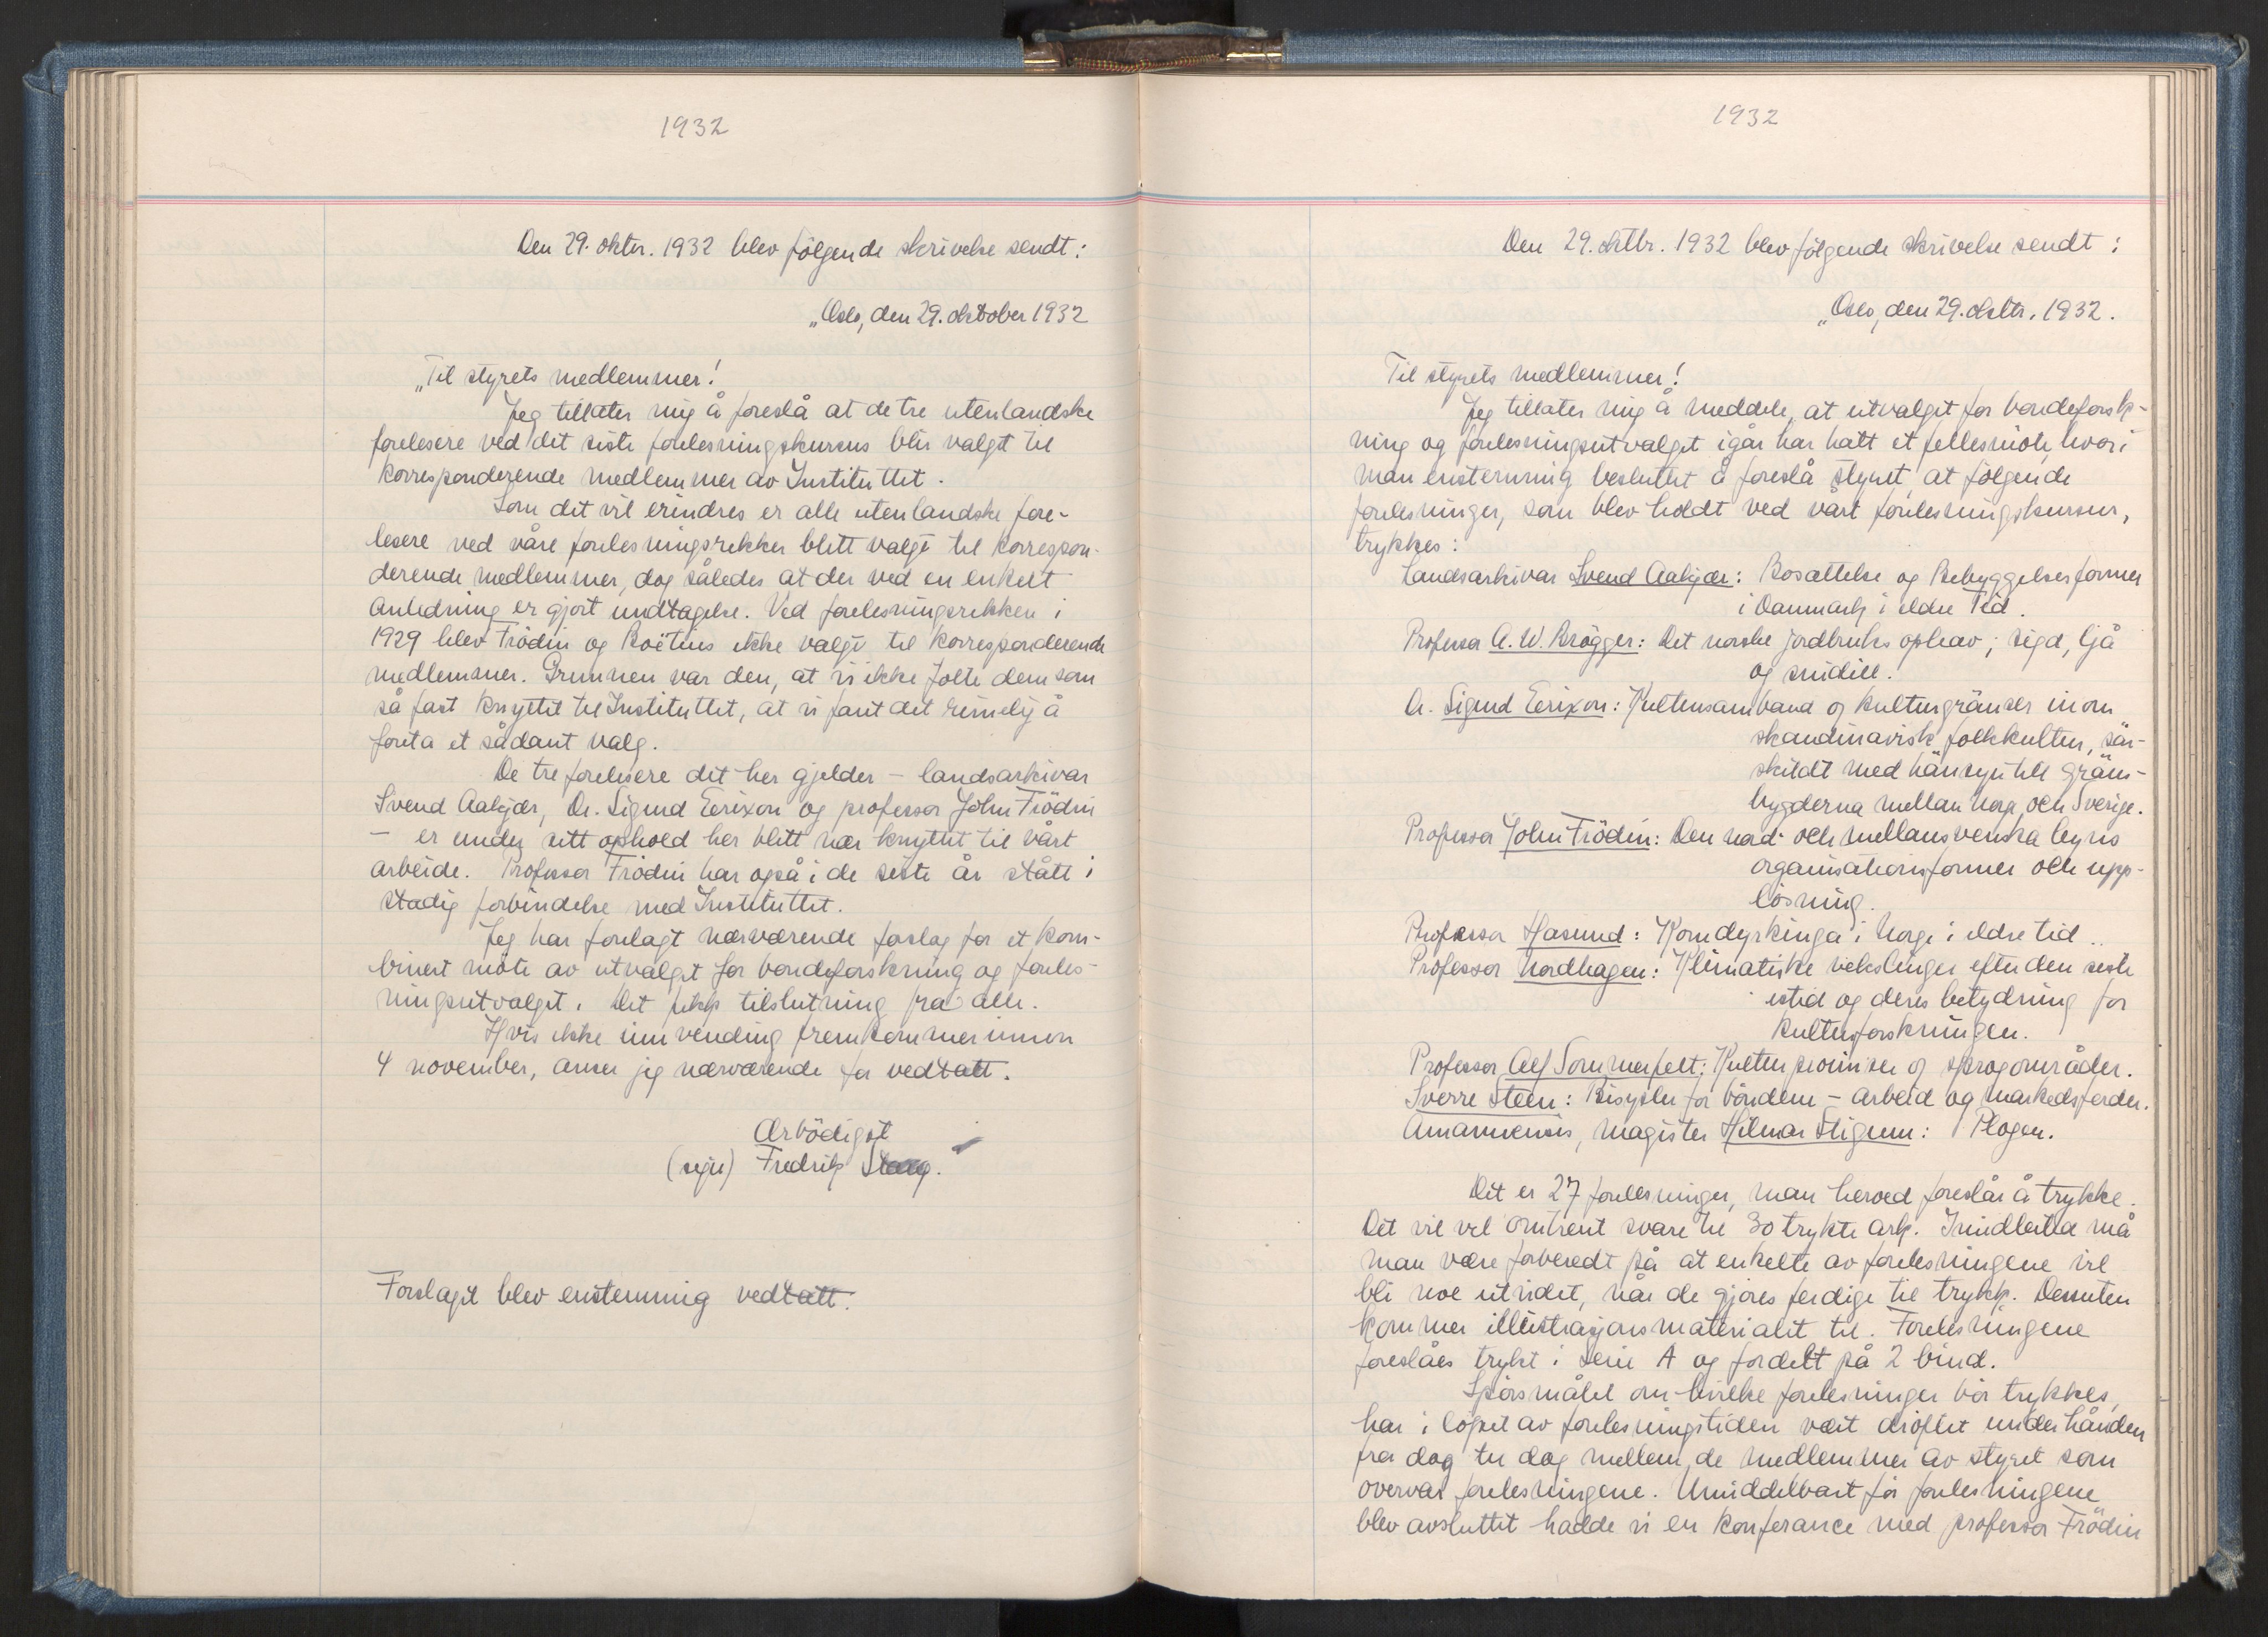 1932
Den 29. oktbr. 1932 blev følgende skrivelse sendt:
„Oslo, den 29. oktober 1932
„Til styrets medlemmer!
Jeg tillater mig å foreslå at de tre utenlandske
forelesere ved det siste forelesningskursus blir valgt til
korresponderende medlemmer av Instituttet.
Som det vil erindres er alle utenlandske fore-
lesere ved våre forelesningsrekker blitt valgt til korrespon-
derende medlemmer, dog således at der ved en enkelt
anledning er gjort undtagelse. Ved forelesningsrekken i
1929 blev Frödin og Boëtius ikke valgt til korresponderende
medlemmer. Grunnen var den, at vi ikke følte dem som
så fast knyttet til Instituttet, at vi fant det rimelig å
foreta et sådant valg.
De tre forelesere det her gjelder – landsarkivar
Svend Aakjær, Dr. Sigurd Erixon og professor John Frödin
– er under sitt ophold her blitt nær knyttet til vårt
arbeide. Professor Frödin har også i de siste år stått i
stadig forbindelse med Instituttet.
Jeg har forelagt nærværende forslag for et kom-
binert møte av utvalget for bondeforskning og foreles-
ningsutvalget. Det fikk tilslutning fra alle.
Hvis ikke innvending fremkommer innen
4 november, anser jeg nærværende for vedtatt.
Ærbödigst
(sign) Fredrik Stang.
Forslaget blev enstemmig vedtatt.
1932
Den 29. oktbr. 1932 blev følgende skrivelse sendt:
„Oslo, den 29. oktbr. 1932.
Til styrets medlemmer!
Jeg tillater mig å meddele, at utvalget for bondeforsk-
ning og forelesningsutvalget igår har hatt et fellesmöte, hvori
man enstemmig besluttet å foreslå styret at følgende
forelesninger, som blev holdt ved vårt forelesningskursus,
trykkes:
Landsarkivar Svend Aakjær: Bosættelse og Bebyggelsesformer
i Danmark i ældre Tid.
Professor A. W. Brøgger: Det norske jordbruks ophav; sigd, ljå
og snidill.
Dr. Sigurd Erixon: Kultursamband og kulturgränser inom
skandinavisk folkkultur, sär-
skildt med hänsyn till gräns-
bygderna mellan Norge och Sverige.
Professor John Frödin: Den nord- och mellansvenska byns
organisationsformer och upp-
lösning.
Professor Hasund: Korndyrkinga i Norge i eldre tid..
Professor Nordhagen: Klimatiske vekslinger efter den siste
istid og deres betydning for
kulturforskningen.
Professor Alf Sommerfelt: Kulturprovinser og sprogområder.
Sverre Steen: Bisysler for bøndene – arbeid og markedsferder.
Amanuensis, magister Hilmar Stigum: Plogen.
Det er 27 forelesninger, man herved foreslår å trykke.
Det vil vel omtrent svare til 30 trykte ark. Imidlertid må
man være forberedt på at enkelte av forelesningene vil
bli noe utvidet, når de gjøres ferdige til trykk. Dessuten
kommer illustrasjonsmaterialet til. Forelesningene
foreslåes trykt i serie A og fordelt på 2 bind.
Spørsmålet om hvilke forelesninger bør trykkes,
har i löpet av forelesningstiden vært drøftet under hånden
fra dag til dag mellem de medlemmer av styret som
overvar forelesningene. Umiddelbart før forelesningene
blev avsluttet hadde vi en konferance med professor Frödin